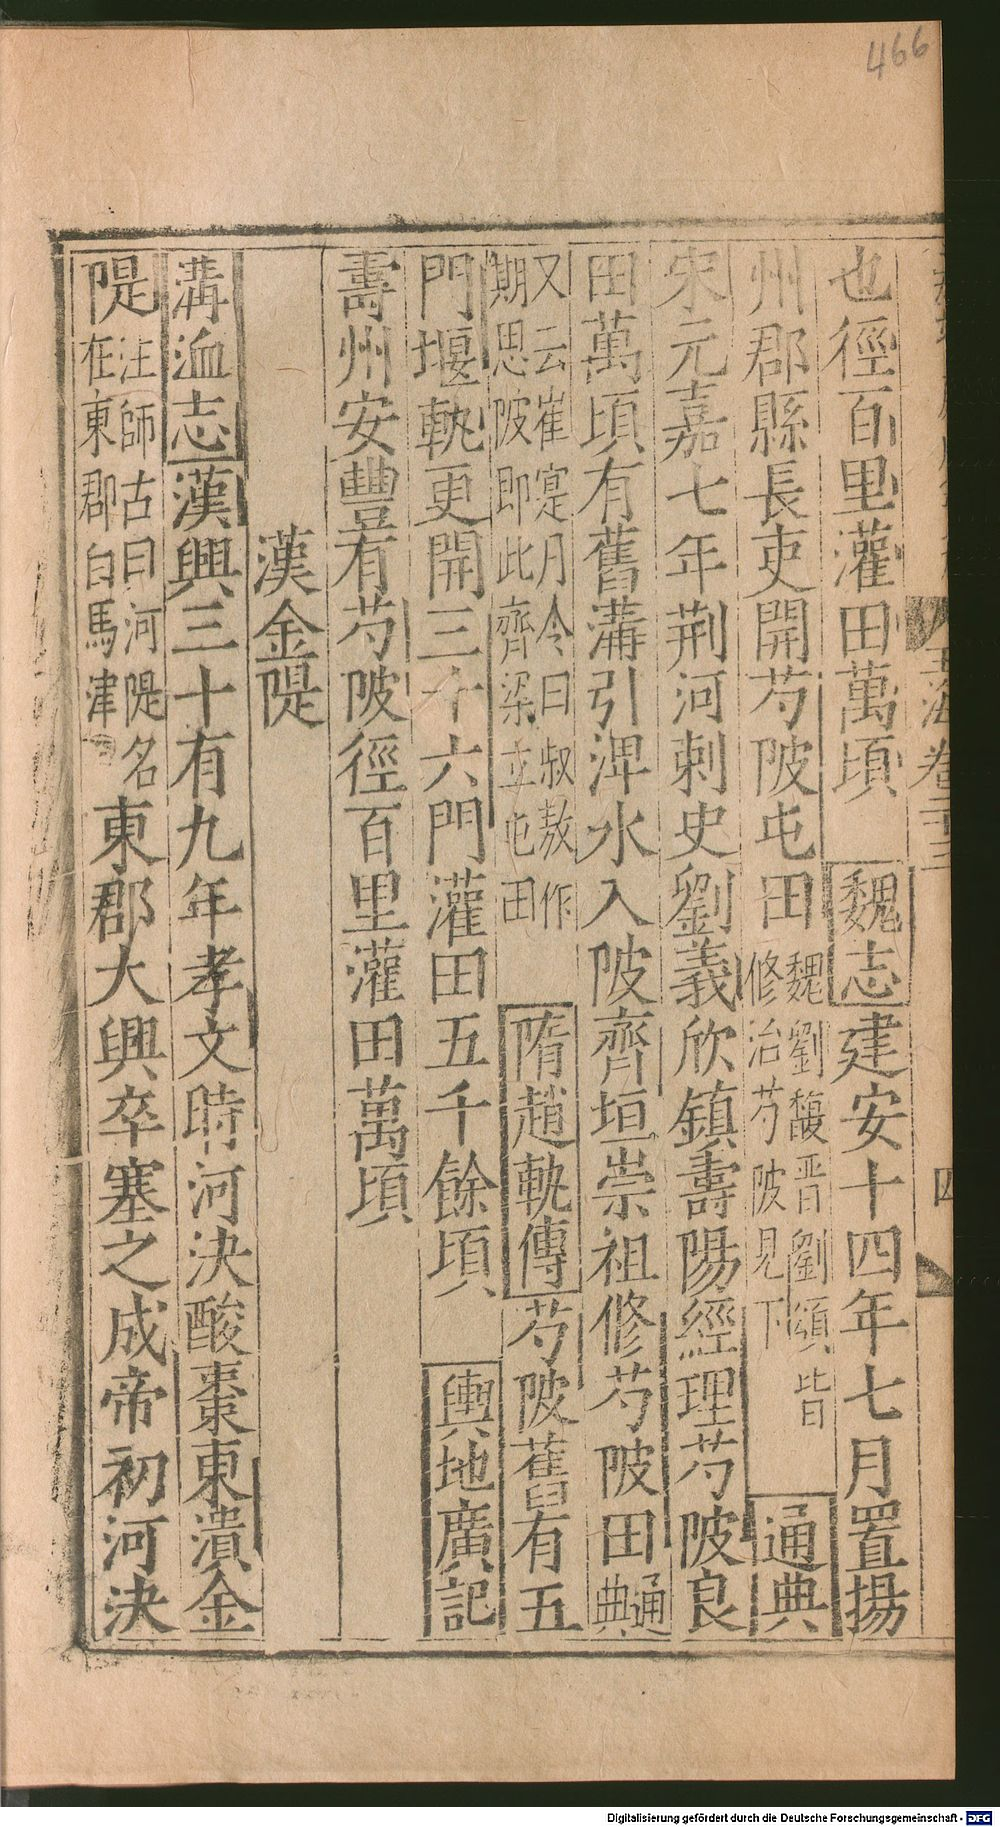 466
玉海卷二十三
四
也徑百里灌田萬頃 魏志建安十四年七月置揚
州郡縣長吏開芍陂屯田魏劉馥晋劉頌皆修治芍陂見下 通典
宋元嘉七年荆河剌史劉義欣鎮壽陽經理芍陂良
田萬頃有舊溝引渒水入陂齊垣崇祖修芍陂田通典
又云崔寔月令曰叔敖作期思陂即此齊梁立屯田 隋趙軌傳芍陂舊有五
門堰軌更開三十六門灌田五千餘頃 輿地廣記
壽州安豐有芍陂徑百里灌田萬頃
漢金隄
溝洫志漢興三十有九年孝文時河決酸棗東潰金
隄注師古曰河隄名在東郡白馬津東郡大興卒塞之成帝初河決
Digitalisierung gefördert durch die Deutsche Forschungsgemeinschaft - DFG